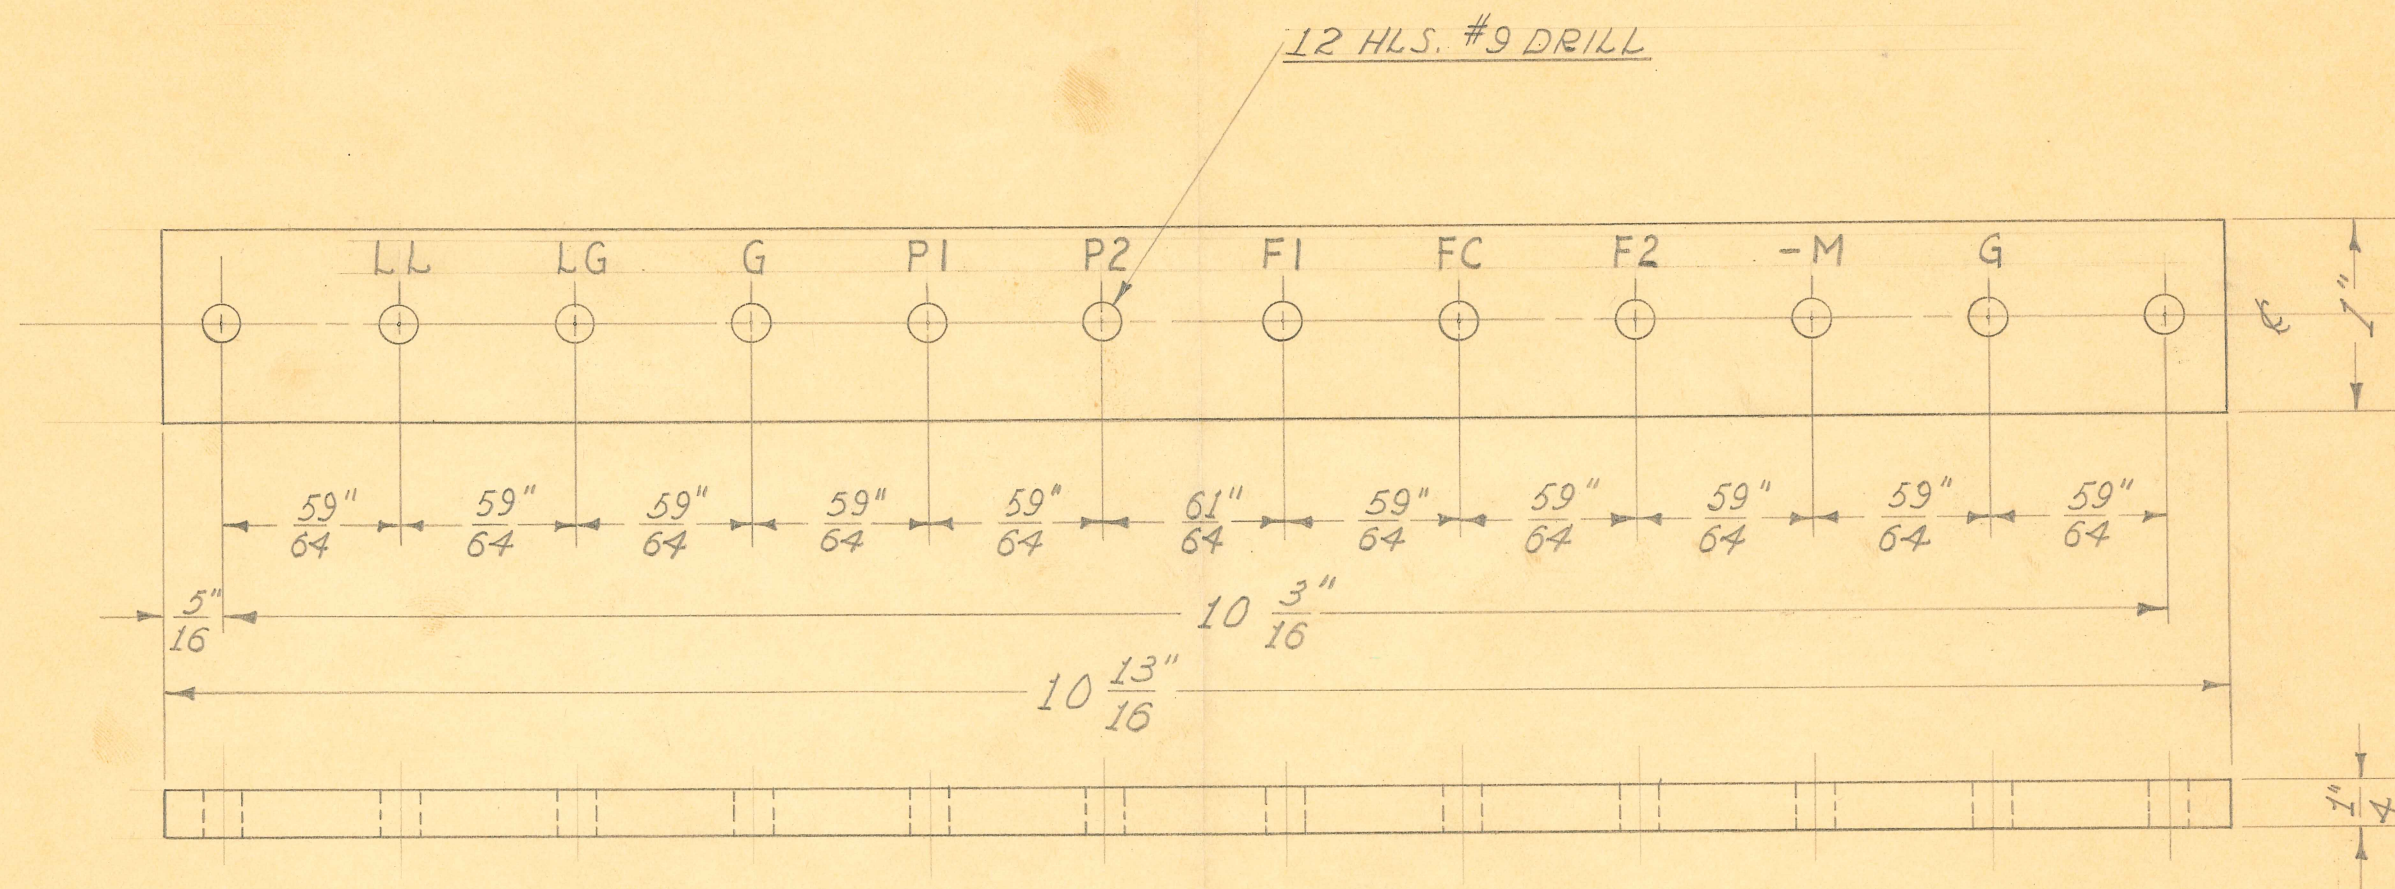 12 HLS. #9 DRILL
LL LG G P1 P2 F1 FC F2 -M G
℄ 1"
59"/64 59"/64 59"/64 59"/64 59"/64 61"/64 59"/64 59"/64 59"/64 59"/64 59"/64
5"/16 10 3"/16
10 13"/16
1"/4